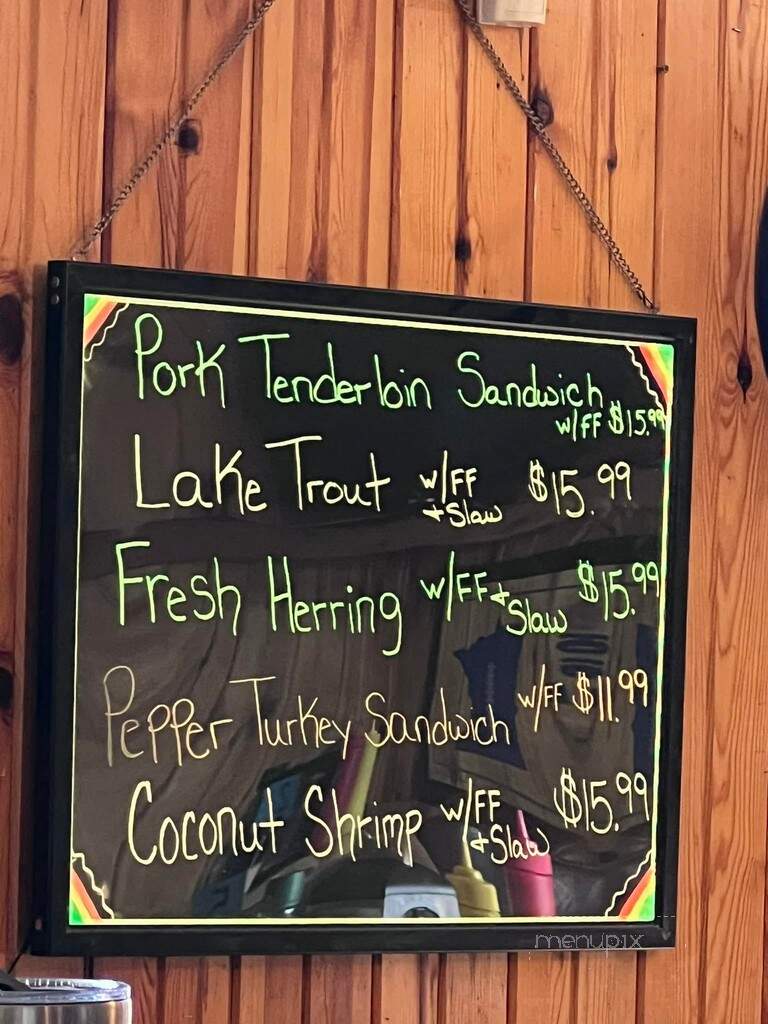 Pork Tenderloin Sandwich
w/FF $15.99
Lake Trout w/FF $15.99
+ Slaw
Fresh Herring w/FF + Slaw $15.99
Pepper Turkey Sandwich w/FF $11.99
Coconut Shrimp w/FF $15.99
+ Slaw
menupix